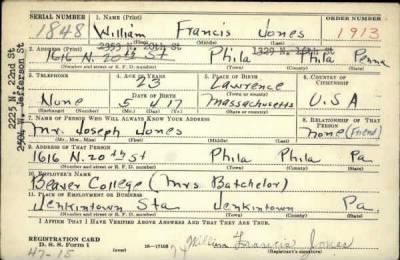 SERIAL NUMBER 1. NAME (Print) ORDER NUMBER
1848 William Francis Jones 1913
(First) (Middle) (Last)
2953 N. 20th St 1329 N.
2. ADDRESS (Print)
1616 N. 20th St Phila Phila Penna
(Number and street or R. F. D. number) (Town) (County) (State)
2227 N. 22nd St
2501 N. Jefferson St
3. TELEPHONE 4. AGE IN YEARS 5. PLACE OF BIRTH 6. COUNTRY OF CITIZENSHIP
23 Lawrence
DATE OF BIRTH (Town or county)
None 5 4 17 Massachusetts U.S.A
(Mo.) (Day) (Yr.) (State or country)
7. NAME OF PERSON WHO WILL ALWAYS KNOW YOUR ADDRESS 8. RELATIONSHIP OF THAT PERSON
Mr. Joseph Jones None (Friend)
9. ADDRESS OF THAT PERSON
1616 N. 20th St Phila Phila Pa
(Number and street or R. F. D. number) (Town) (County) (State)
10. EMPLOYER'S NAME
Beaver College (Mrs Batchelor)
11. PLACE OF EMPLOYMENT OR BUSINESS
Jenkintown Sta Jenkintown Pa.
(Number and street or R. F. D. number) (Town) (State)
I AFFIRM THAT I HAVE VERIFIED ABOVE ANSWERS AND THAT THEY ARE TRUE.
REGISTRATION CARD
D. S. S. Form 1 (over) 16-17105 William Francis Jones
47-15 (Registrant's signature)